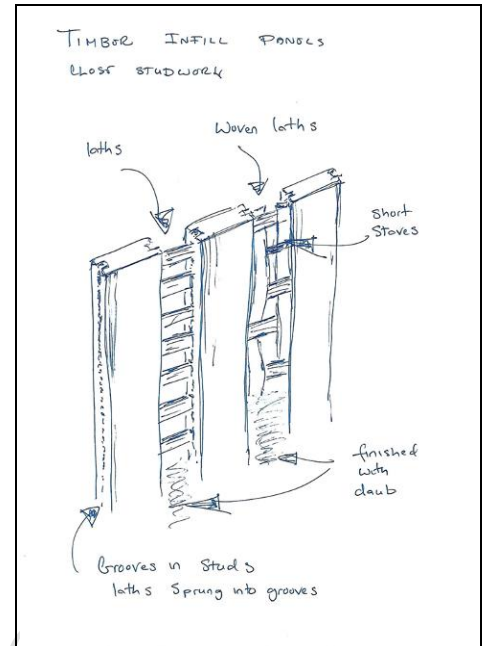 TIMBOR INFILL PANELS
CLOSE STUDWORK
Woven laths
laths
Short
Staves
finished
with
daub
Grooves in Studs
laths Sprung into grooves